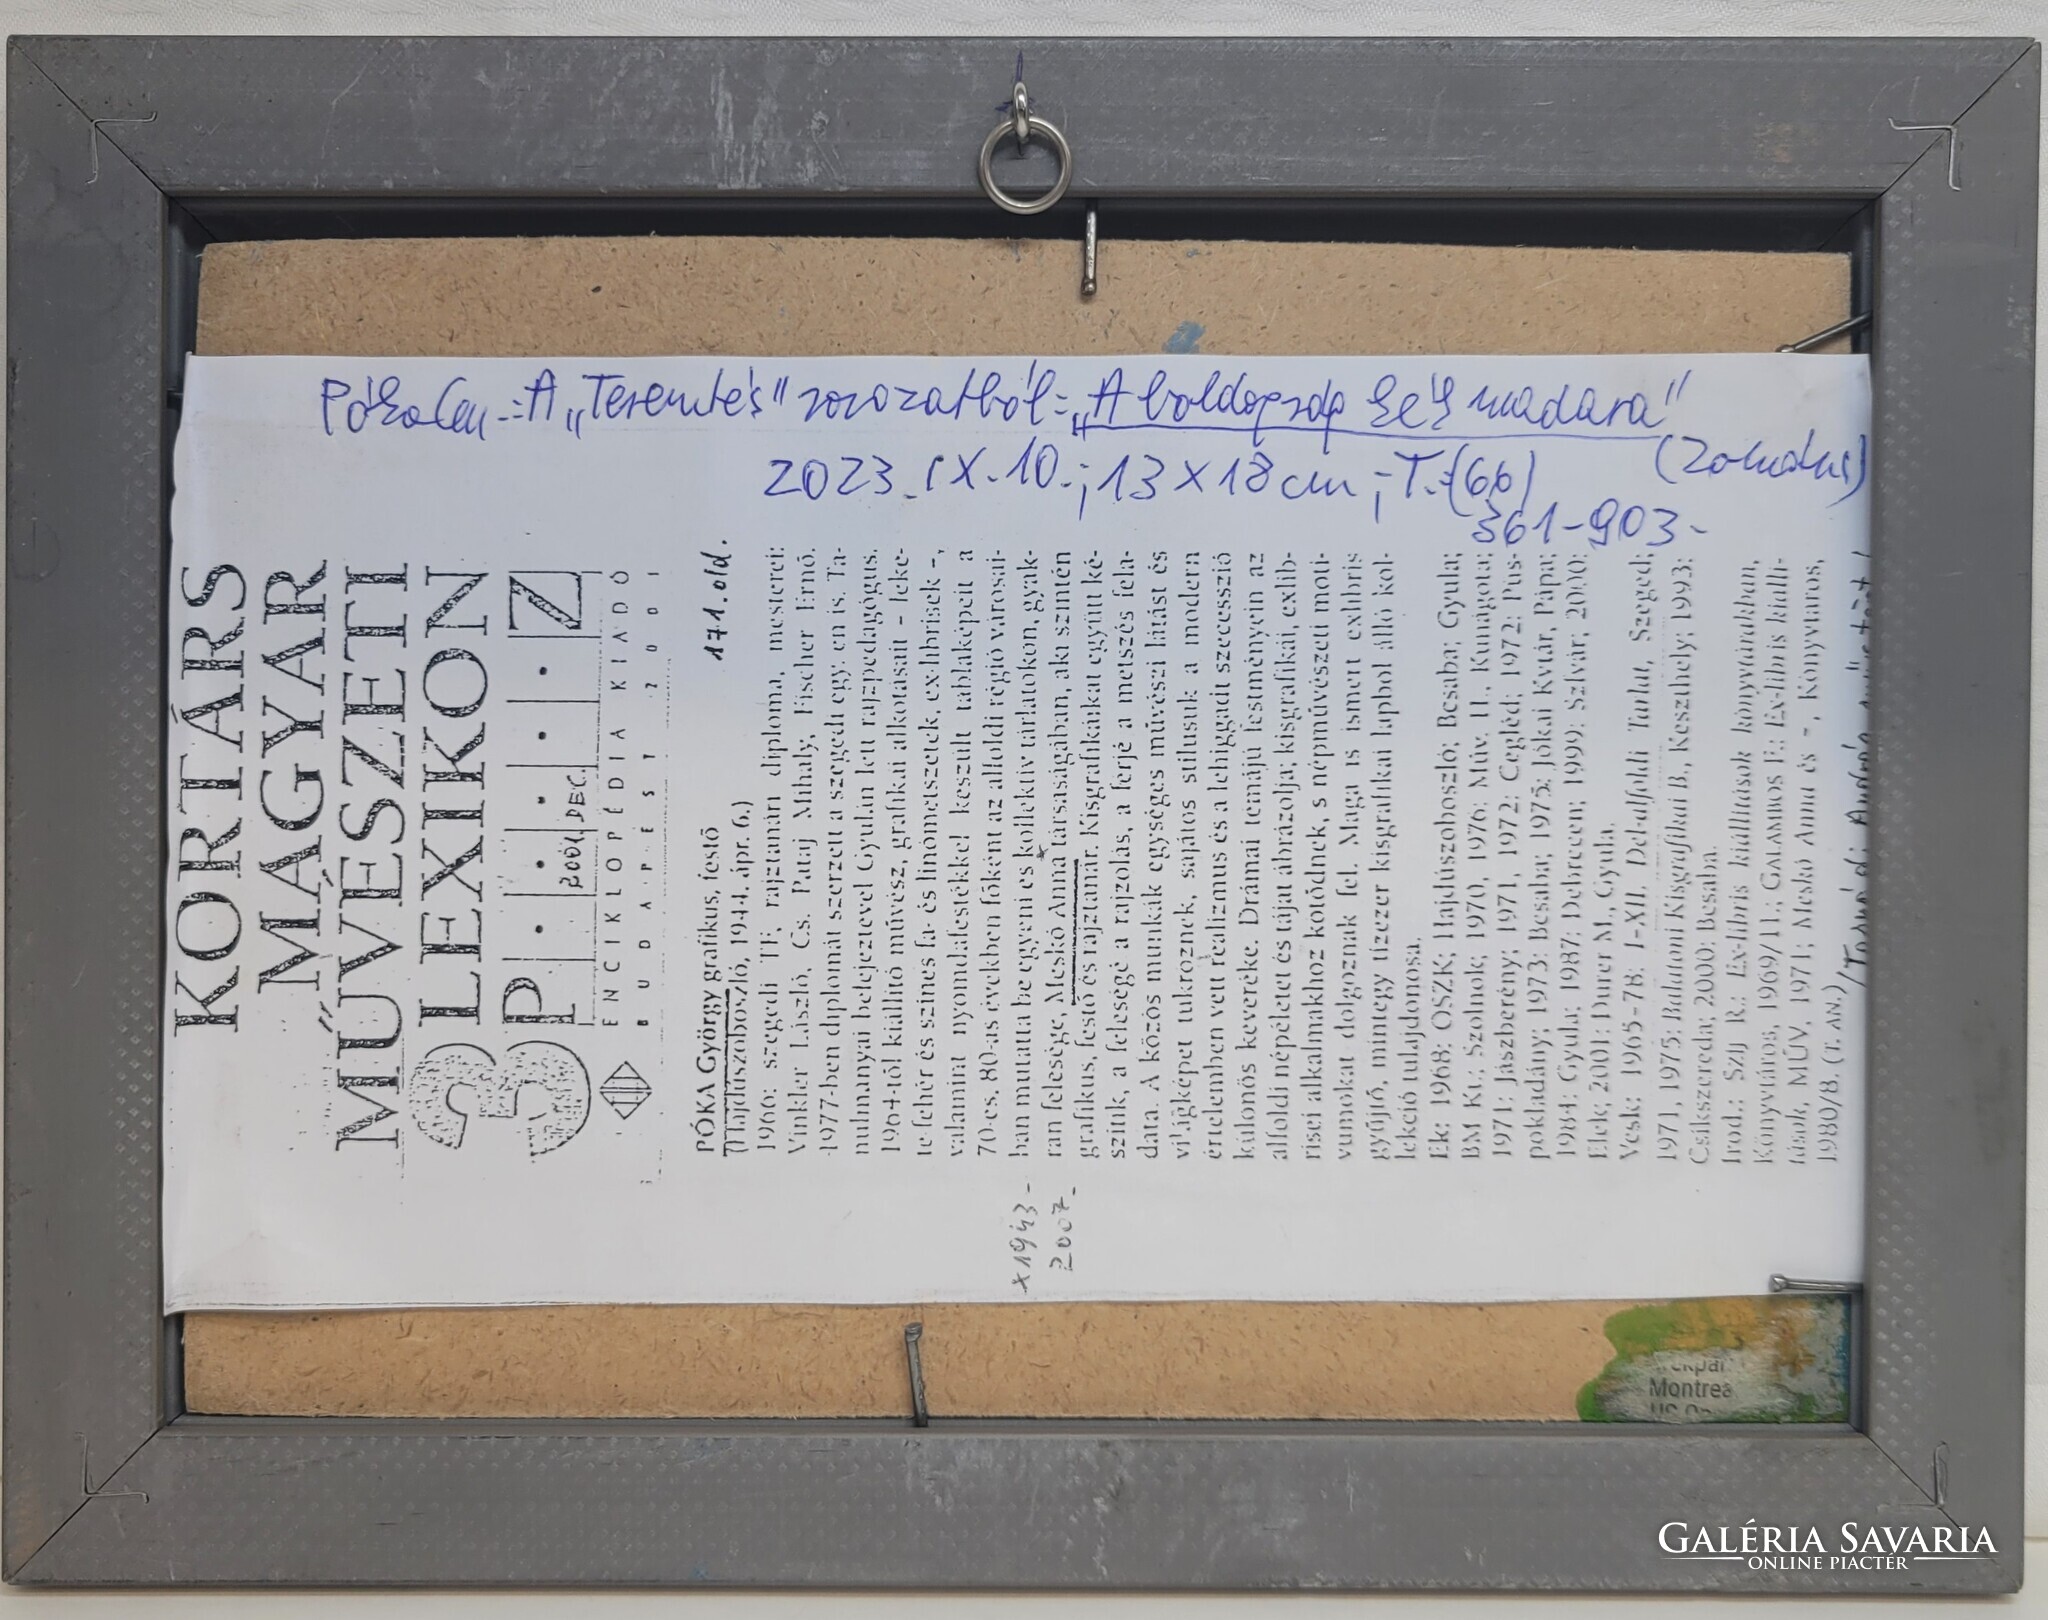 Teremtés" sorozatból = "A boldogság kék madara"
2023. IX. 10.; 13 x 18 cm; T.: (66)
361-903-
KORTÁRS
MAGYAR
MŰVÉSZETI
LEXIKON
3 P Z
2001. DEC.
ENCIKLOPÉDIA KIADÓ
BUDAPEST 2001
171. old.
PÓKA György grafikus, festő
(Hajdúszoboszló, 1944. ápr. 6.)
1966: szegedi TF, rajztanári diploma, mesterei:
Vinkler László, Cs. Pataj Mihály, Fischer Ernő.
1977-ben diplomát szerzett a szegedi egy.-en is. Ta-
nulmányai befejeztével Gyulán lett rajzpedagógus.
1964-től kiállító művész, grafikai alkotásait – feke-
te-fehér és színes fa- és linómetszetek, ex-librisek –,
valamint nyomdafestékkel készült táblaképeit a
70-es, 80-as években főként az alföldi régió városai-
ban mutatta be egyéni és kollektív tárlatokon, gyak-
ran felesége, Meskó Anna társaságában, aki szintén
grafikus, festő és rajztanár. Kisgrafikáikat együtt ké-
szítik, a felesége a rajzolás, a férje a metszés fela-
data. A közös munkák egységes művészi látást és
világképet tükröznek, sajátos stílusuk a modern
értelemben vett realizmus és a lehiggadt szecesszió
különös keveréke. Drámai témájú festményein az
alföldi népéletet és tájat ábrázolja; kisgrafikái, exlib-
risei alkalmakhoz kötődnek, s népművészeti moti-
vumokat dolgoznak fel. Maga is ismert exlibris
gyűjtő, mintegy tízezer kisgrafikai lapból álló kol-
lekció tulajdonosa.
Ek: 1968: OSZK; Hajdúszoboszló; Bcsaba; Gyula;
BM Kt.; Szolnok; 1970, 1976: Műv. H., Kunágota;
1971: Jászberény; 1971, 1972: Cegléd; 1972: Püs-
pokladány; 1973: Bcsaba; 1975: Jókai Kvtár, Pápa;
1984: Gyula; 1987: Debrecen; 1999: Szfvár; 2000:
Elek; 2001: Dürer M., Gyula.
Vcsk: 1965-78: I-XII. Dél-alföldi Tárlat, Szeged;
1971, 1975: Balatoni Kisgrafikai B., Keszthely; 1993:
Csíkszereda; 2000: Bcsaba.
Irod.: Szíj R.: Ex-libris kiállítások könyvtárakban,
Könyvtáros, 1969/11.; GALAMBOS F.: Ex-libris kiállí-
tások, MŰV, 1971; Meskó Anna és –, Könyvtáros,
1980/8. (T. AN.)
x1943-
2007-
Montrea
GALÉRIA SAVARIA
ONLINE PIACTÉR